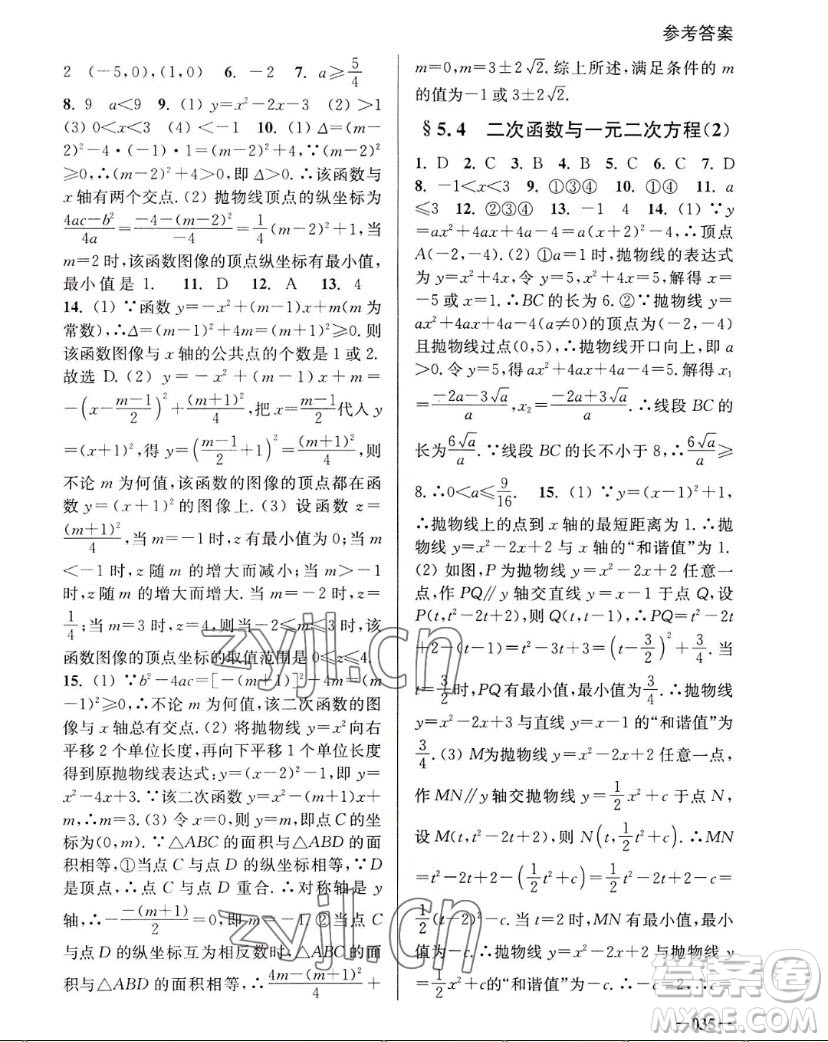 参考答案
2 (-5,0),(1,0) 6. -2 7. a≥5/4
8. 9 a<9 9. (1) y=x²-2x-3 (2) >1
(3) 0<x<3 (4) <-1 10. (1) Δ=(m-
2)²-4·(-1)·1=(m-2)²+4.∵(m-2)²
≥0,∴(m-2)²+4>0,即Δ>0.∴该函数图像与
x轴有两个交点.(2) 抛物线顶点的纵坐标为
(4ac-b²)/4a=(-4-(m-2)²)/-4=1/4(m-2)²+1,当
m=2时,该函数图像的顶点纵坐标有最小值,
最小值是1. 11. D 12. A 13. 4
14. (1) ∵函数y=-x²+(m-1)x+m(m为
常数),∴Δ=(m-1)²+4m=(m+1)²≥0.则
该函数图像与x轴的公共点的个数是1或2.
故选D.(2) y=-x²+(m-1)x+m=
-(x-(m-1)/2)²+(m+1)²/4,把x=(m-1)/2代入y
=(x+1)²,得y=((m-1)/2+1)²=(m+1)²/4,则
不论m为何值,该函数的图像的顶点都在函数
y=(x+1)²的图像上.(3) 设函数z=
(m+1)²/4,当m=-1时,z有最小值为0;当m
<-1时,z随m的增大而减小;当m>-1
时,z随m的增大而增大.当m=-2时,z=
1/4;当m=3时,z=4,则当-2≤m≤3时,该
函数图像的顶点坐标的取值范围是0≤z≤4.
15. (1) ∵b²-4ac=[-(m+1)]²-4m=(m
-1)²≥0,∴不论m为何值,该二次函数的图
像与x轴总有交点.(2) 将抛物线y=x²向右
平移2个单位长度,再向下平移1个单位长度
得到原抛物线表达式:y=(x-2)²-1,即y=
x²-4x+3.∵该二次函数y=x²-(m+1)x+
m,∴m=3.(3) 令x=0,则y=m,即点C的坐
标为(0,m).∵△ABC的面积与△ABD的面
积相等,①当点C与点D的纵坐标相等,∵D
是顶点,∴点C与点D重合.∴对称轴是y
轴,∴-(-(m+1))/2=0,解得m=-1,②当点C
与点D的纵坐标互为相反数时,△ABC的面
积与△ABD的面积相等,∴(4m-(m+1)²)/4+
m=0,m=3±2√2.综上所述,满足条件的m
的值为-1或3±2√2.
§5.4 二次函数与一元二次方程(2)
1. D 2. C 3. B 4. C 5. B 6. C 7. D
8. -1<x<3 9. ①③④ 10. ①④ 11. a
≤3 12. ②③④ 13. -1 4 14. (1) ∵y
=ax²+4ax+4a-4=a(x+2)²-4,∴顶点
A(-2,-4).(2) ①a=1时,抛物线的表达式
为y=x²+4x,令y=5,则x²+4x=5,解得x=
-5或x=1.∴BC的长为6.②∵抛物线y=
ax²+4ax+4a-4(a≠0)的顶点为(-2,-4)
且抛物线过点(0,5),∴抛物线开口向上,即a
>0.令y=5,得ax²+4ax+4a-4=5.解得x₁
=(-2a-3√a)/a,x₂=(-2a+3√a)/a.∴线段BC的
长为6√a/a.∵线段BC的长不小于8,∴6√a/a≥
8.∴0<a≤9/16. 15. (1) ∵y=(x-1)²+1,
∴抛物线上的点到x轴的最短距离为1.∴
抛物线y=x²-2x+2与x轴的“和谐值”为1.
(2) 如图,P为抛物线y=x²-2x+2任意一
点,作PQ∥y轴交直线y=x-1于点Q,设
P(t,t²-2t+2),则Q(t,t-1),∴PQ=t²-2t
+2-(t-1)=t²-3t+3=(t-3/2)²+3/4.当
t=3/2时,PQ有最小值,最小值为3/4.∴抛物线
y=x²-2x+3与直线y=x-1的“和谐值”为
3/4.(3) M为抛物线y=x²-2x+2任意一点,
作MN∥y轴交抛物线y=1/2x²+c于点N,
设M(t,t²-2t+2),则N(t,1/2t²+c).∴MN
=t²-2t+2-(1/2t²+c)=1/2t²-2t+2-c=
1/2(t-2)²-c.当t=2时,MN有最小值,最小
值为-c.∴抛物线y=x²-2x+2与抛物线y
=1/2x²+c的“和谐值”为-c.∴-c=
—035—
zyjl.cn
zyjl.cn
答案圈